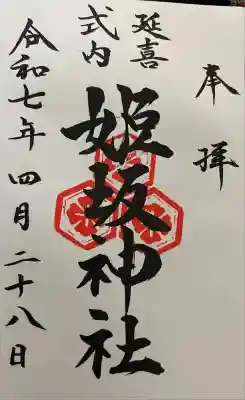 奉拝
延喜
式内
姫坂神社
令和七年四月二十八日